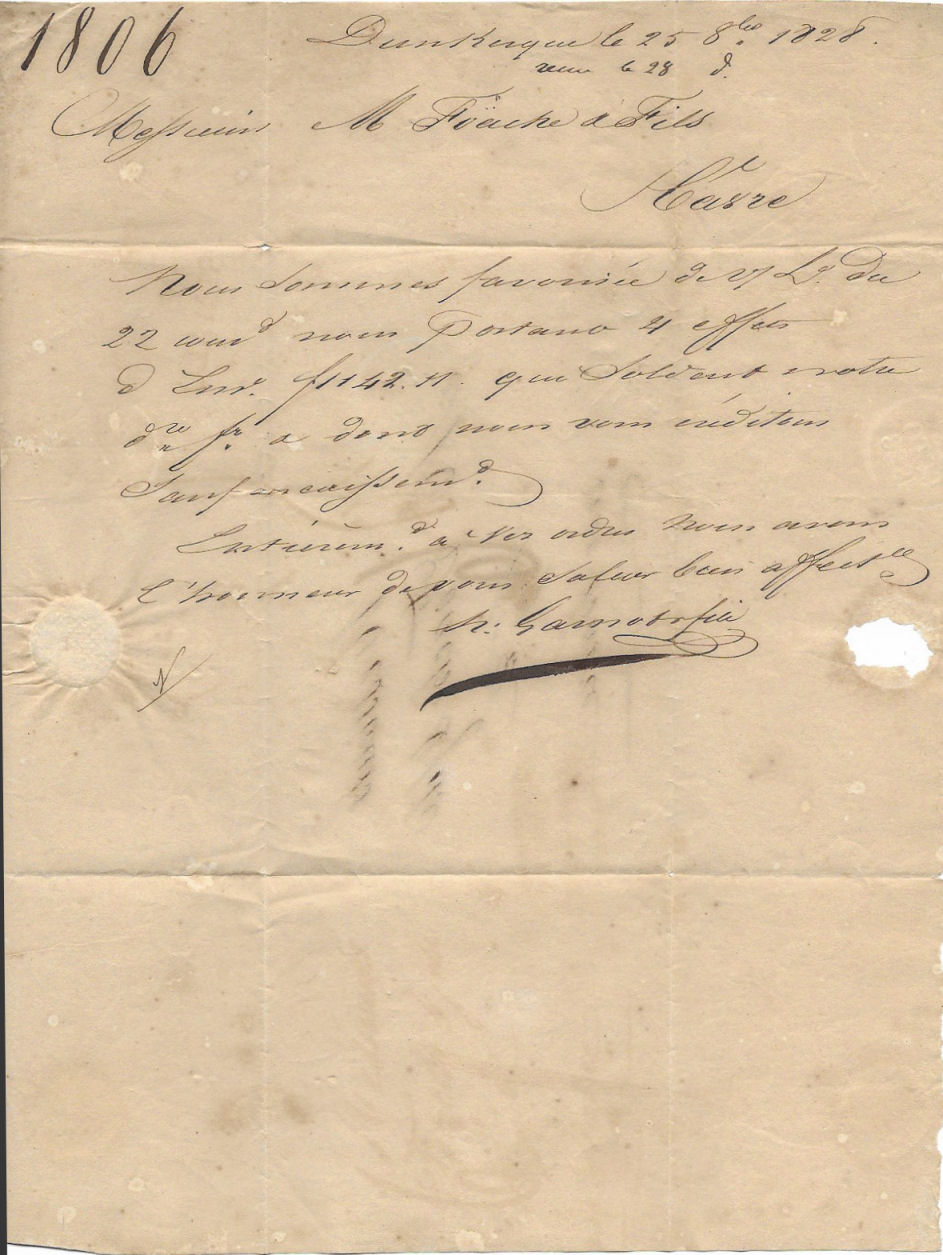 1806
Dunkerque le 25 8bre 1828.
reçu le 28 d.
Messieurs M Föache & Fils
Havre
Nous sommes favorisés de v/ Le. du
22 cour.t nous portant 4 effets
d Ens. f 1142.11. que soldent votre
f.re a dont nous vous créditons
Sauf encaissem.t
Entièrem.t à vos ordres nous avons
L'honneur de vous saluer bien affect